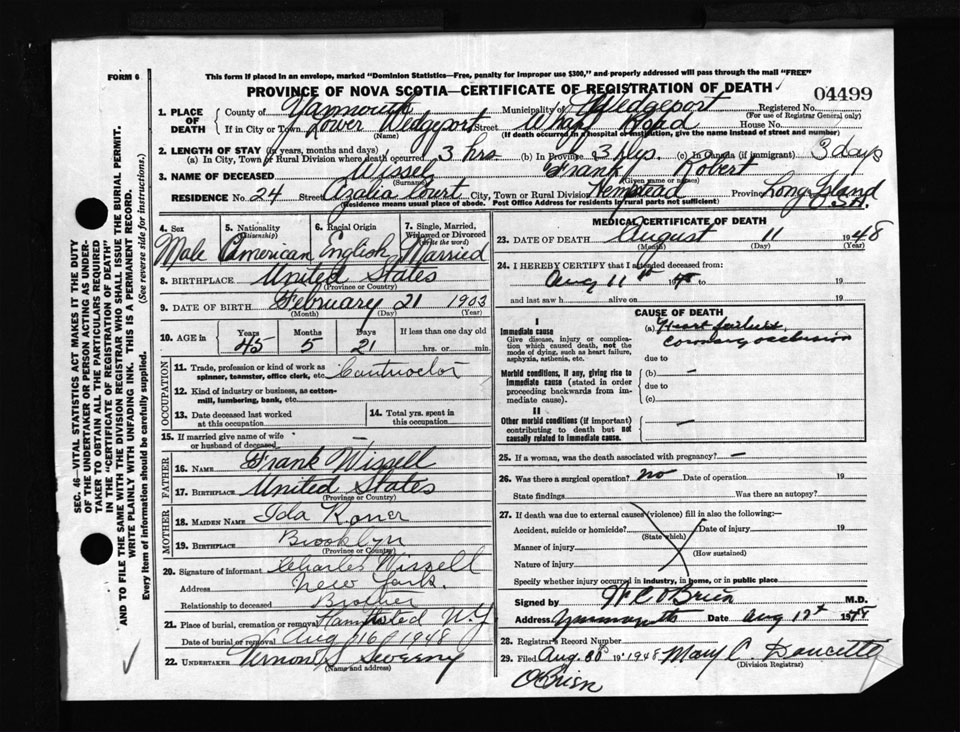 FORM 6
This form if placed in an envelope, marked "Dominion Statistics—Free, penalty for improper use $300," and properly addressed will pass through the mail "FREE"
PROVINCE OF NOVA SCOTIA—CERTIFICATE OF REGISTRATION OF DEATH
04499
1. PLACE OF DEATH
County of Yarmouth Municipality of Wedgeport Registered No.
(For use of Registrar General only)
If in City or Town Lower Wedgeport Street Wharf Road House No.
(Name) (If death occurred in a hospital or institution, give the name instead of street and number)
2. LENGTH OF STAY (in years, months and days)
(a) In City, Town or Rural Division where death occurred 3 hrs. (b) In Province 3 dys. (c) In Canada (if immigrant) 3 days
3. NAME OF DECEASED Wissel Frank Robert
(Surname) (Given name or names)
RESIDENCE No. 24 Street Azalia Court City, Town or Rural Division Hempstead Province Long Island
U.S.A.
(Residence means usual place of abode. Post Office Address for residents in rural parts not sufficient.)
4. Sex
5. Nationality (Citizenship)
6. Racial Origin
7. Single, Married, Widowed or Divorced (Write the word)
Male American English Married
8. BIRTHPLACE United States
(Province or Country)
9. DATE OF BIRTH February 21 1903
(Month) (Day) (Year)
10. AGE in
Years Months Days If less than one day old
45 5 21 hrs. or min.
OCCUPATION
11. Trade, profession or kind of work as spinner, teamster, office clerk, etc. Contractor
12. Kind of industry or business, as cotton-mill, lumbering, bank, etc.
13. Date deceased last worked at this occupation
14. Total yrs. spent in this occupation
15. If married give name of wife or husband of deceased —
FATHER
16. NAME Frank Wissell
17. BIRTHPLACE United States
(Province or Country)
MOTHER
18. MAIDEN NAME Ida
19. BIRTHPLACE Brooklyn
(Province or Country)
20. Signature of informant Charles Wissell
Address New York.
Relationship to deceased Brother
21. Place of burial, cremation or removal N.Y
Date of burial or removal Aug 16 1948
22. UNDERTAKER Vernon S. Sweeny
(Name and address)
MEDICAL CERTIFICATE OF DEATH
23. DATE OF DEATH August 11 1948
(Month) (Day) (Year)
24. I HEREBY CERTIFY that I attended deceased from:
Aug 11th 1948 to 19
and last saw h alive on 19
CAUSE OF DEATH
I
Immediate cause
Give disease, injury or complication which caused death, not the mode of dying, such as heart failure, asphyxia, asthenia, etc.
(a) Heart failure,
coronary occlusion
due to
Morbid conditions, if any, giving rise to immediate cause (stated in order proceeding backwards from immediate).
(b) —
due to
(c)
II
Other morbid conditions (if important) contributing to death but not causally related to immediate cause.
—
25. If a woman, was the death associated with pregnancy? —
26. Was there a surgical operation? no Date of operation 19
State findings Was there an autopsy?
27. If death was due to external causes (violence) fill in also the following:—
Accident, suicide or homicide? Date of injury 19
(State which)
Manner of injury
(How sustained)
Nature of injury
Specify whether injury occurred in industry, in home, or in public place
Signed by O'Brien M.D.
Address Date Aug 12th 1948
28. Registrar's Record Number
29. Filed Aug. 30 19 1948 Mary C. Doucette
(Division Registrar)
O'Brien
SEC. 46—VITAL STATISTICS ACT MAKES IT THE DUTY
OF THE UNDERTAKER OR PERSON ACTING AS UNDER-
TAKER TO OBTAIN ALL THE PARTICULARS REQUIRED
IN THE "CERTIFICATE OF REGISTRATION OF DEATH"
AND TO FILE THE SAME WITH THE DIVISION REGISTRAR WHO SHALL ISSUE THE BURIAL PERMIT.
WRITE PLAINLY WITH UNFADING INK. THIS IS A PERMANENT RECORD.
Every item of information should be carefully supplied. (See reverse side for instructions.)